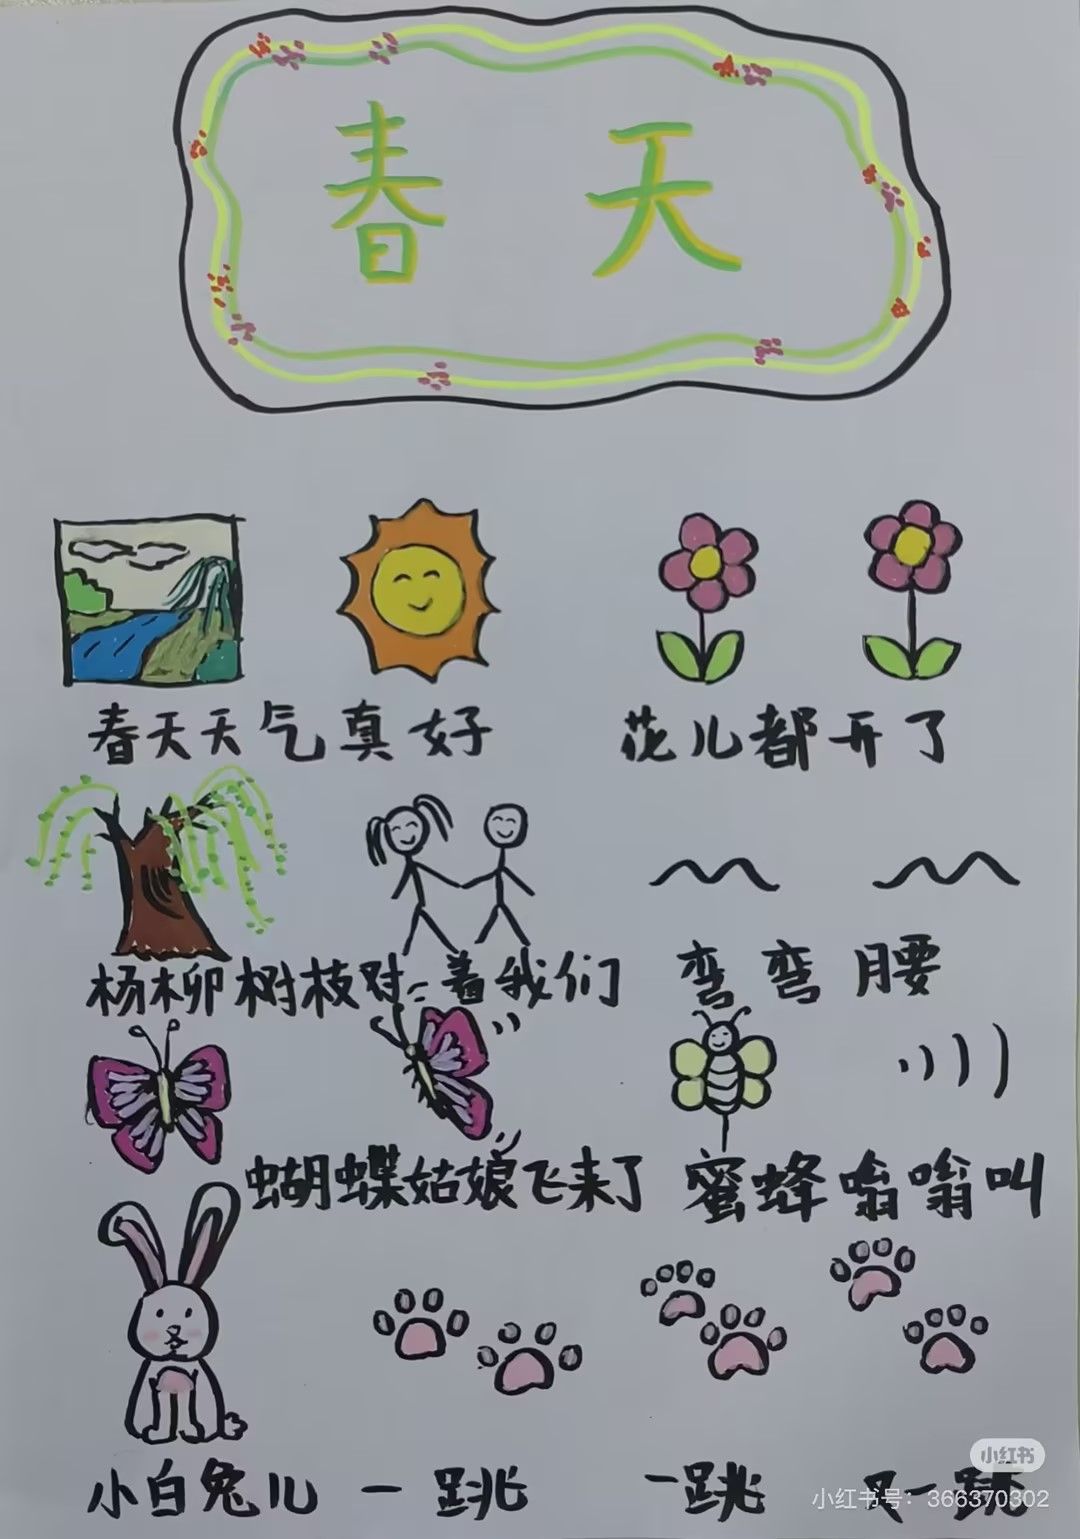 春天
春天天气真好 花儿都开了
杨柳树枝对着我们 弯弯腰
蝴蝶姑娘飞来了 蜜蜂嗡嗡叫
小白兔儿 一跳 一跳 又一跳
小红书
小红书号：366370302